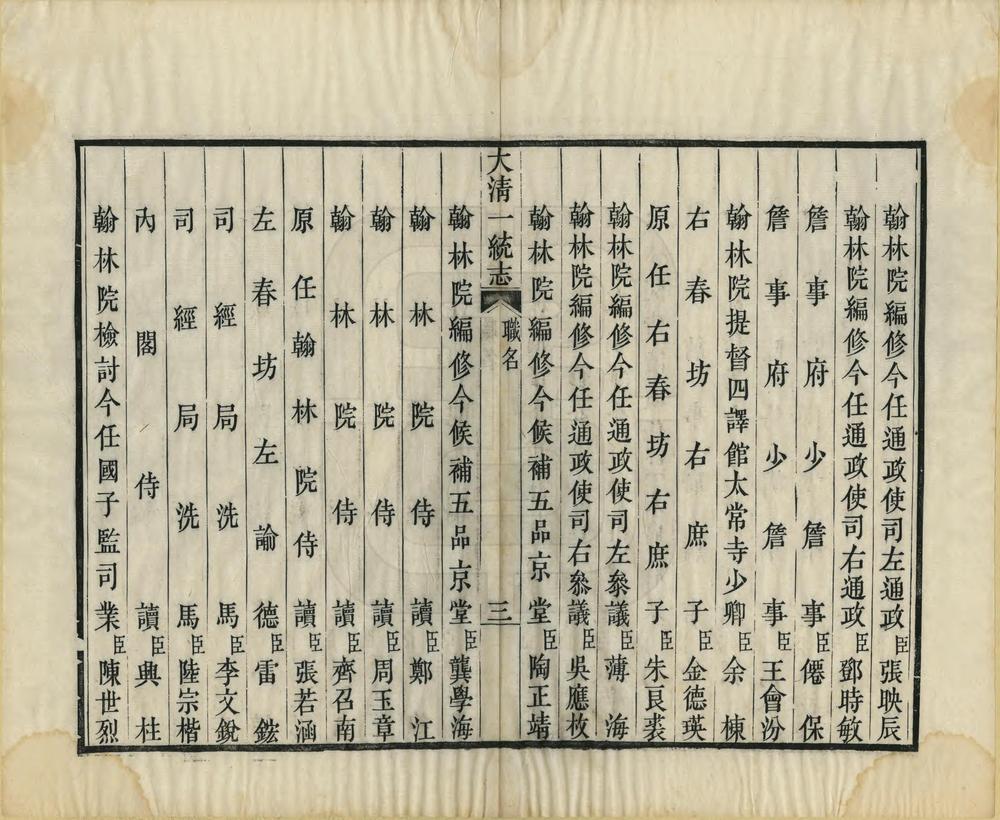 翰林院編修今任通政使司左通政臣張映辰
翰林院編修今任通政使司右通政臣鄧時敏
詹事府少詹事臣僊保
詹事府少詹事臣王會汾
翰林院提督四譯館太常寺少卿臣余棟
右春坊右庶子臣金德瑛
原任右春坊右庶子臣朱良裘
翰林院編修今任通政使司左叅議臣薄海
翰林院編修今任通政使司右叅議臣吳應枚
翰林院編修今候補五品京堂臣陶正靖
大清一統志
職名
三
翰林院編修今候補五品京堂臣龔學海
翰林院侍讀臣鄭江
翰林院侍讀臣周玉章
翰林院侍讀臣齊召南
原任翰林院侍讀臣張若涵
左春坊左諭德臣雷鋐
司經局洗馬臣李文銳
司經局洗馬臣陸宗楷
內閣侍讀臣典柱
翰林院檢討今任國子監司業臣陳世烈